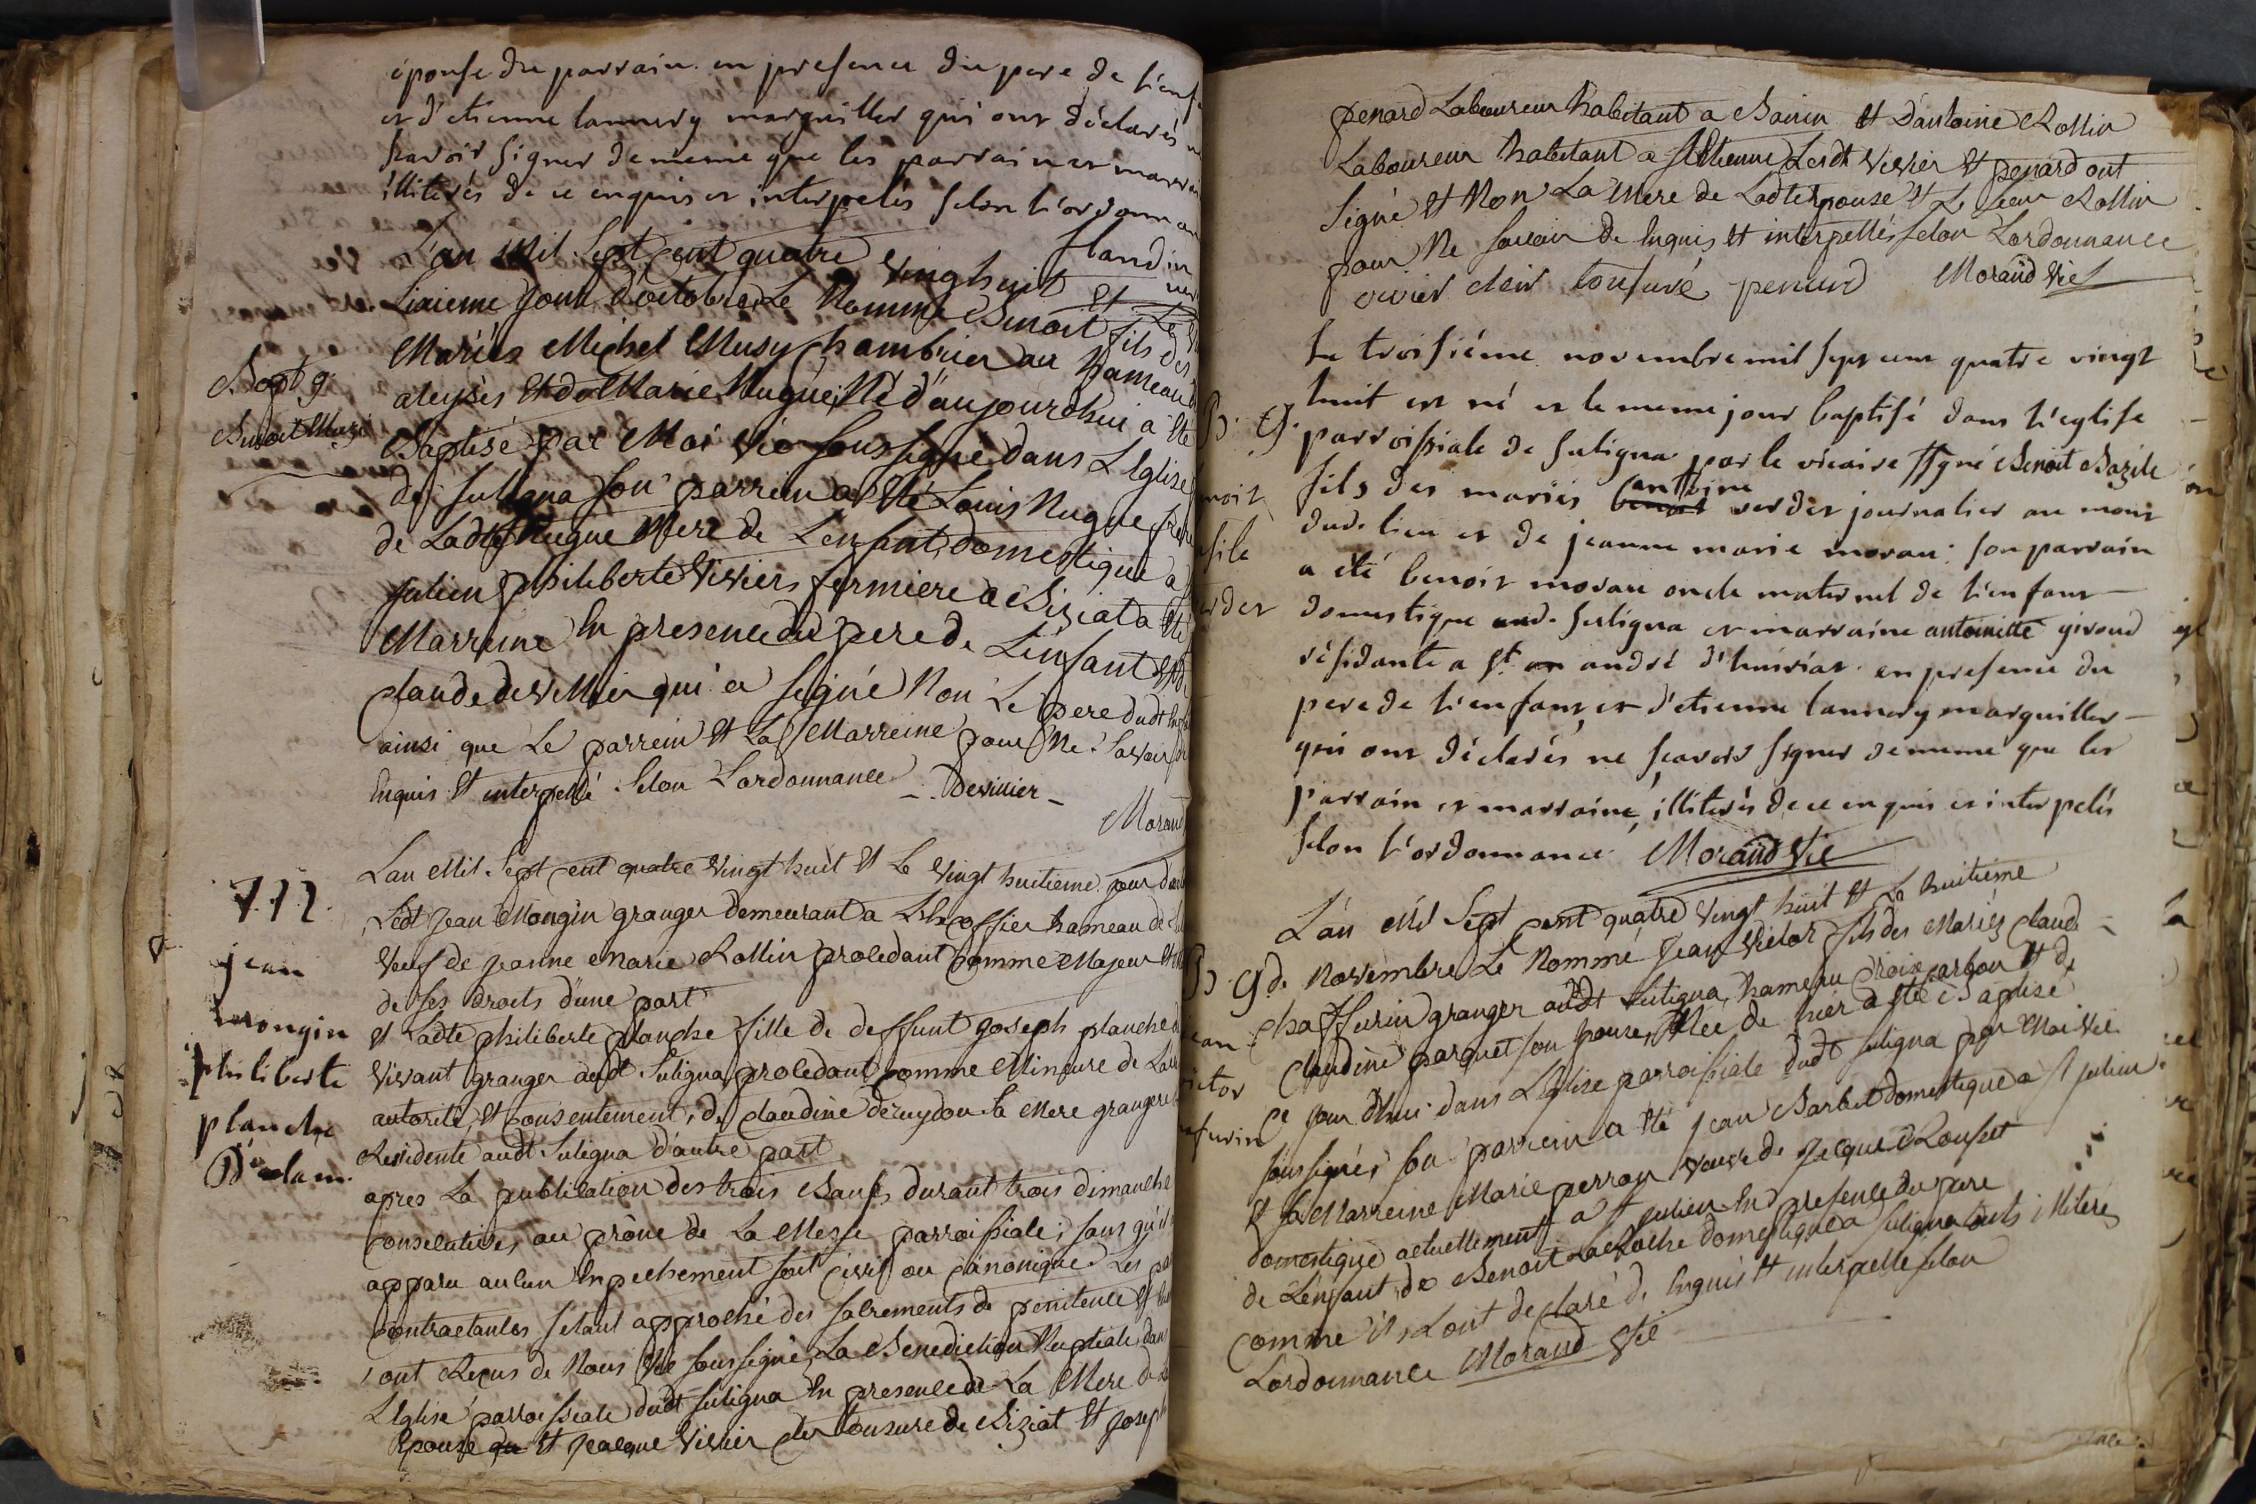 épouse du parrain en presence du pere de l'enf
et d'etienne lannery marguiller qui ont déclarés
scavoir signer de meme que les parrain et marrai
illiterés de ce enquis et interpelés selon l'ordonnan
flandrin
L'an Mil Sept Cent quatre Vingt huit Et Le
Sixieme Jour d'octobre Le Nommé Benoit fils des
Mariés Michel Musy Chambrier au hameau
Et de Marie Nugue Né d'aujourdhui a Eté
Bapt g.
Benoit Muzi
Baptisé par Moi Vic soussigné dans L'Eglise
de Suligna son parrein a Eté Louis Nugue frere
de Ladte Nugue Mere de L'enfant, domestique a
Julien philiberte Vivier fermiere a Biziat a Eté
Marreine En presence du pere de L'enfant Et de
Claude deVillier qui a signé Non Le pere dudt Enf
ainsi que Le parrein Et La Marreine pour Ne Savoir
Enquis Et interpellé Selon L'ordonnance - Devillier -
Morand
L'an Mil Sept Cent quatre Vingt huit Et Le Vingt huitieme jour d
Ledt Jean Mongin granger demeurant a hameau de
Veuf de Jeanne Marie Rollin procedant Comme Majeur Et
de ses droits d'une part
Et Ladte philiberte planche fille de deffunt Joseph planche
Vivant granger audt Suligna, procedant Comme Mineure de L
autorité, Et Consentement, de Claudine sa Mere grangere
Residente audt Suligna d'autre part
712
jean
mongin
philiberte
planche
apres La publication des trois Bans, durant trois dimanche
Consecutives, au prône de La Messe parroissiale, sans qu'il
apparu aucun Enpechement soit Civil ou Canonique. Les pa
Contractantes s'etant approché des sacrements de penitence Et
ont Reçus de Nous Vic soussigné, La Benediction Nuptiale, dans
L'Eglise parroissiale dudt Suligna En presence de La Mere de
Epouse Et Jacque Vivier clerc tonsuré de Biziat Et Joseph
penard Laboureur habitant a Et D'antoine Rollin
Laboureur habitant a St Etienne, Lesdt Vivier Et penard ont
Signé Et Non La Mere de Ladte Epouse Et Le Sieur Rollin
pour Ne savoir de Enquis, Et interpellés selon L'ordonnance
vivier clerc tonsuré penard Morand Vic
Le troisiéme novembre mil sept cent quatre vingt
huit est né et le meme jour baptisé dans l'eglise
parroissiale de Suligna par le vicaire ssgné Benoit Bazile
fils des mariés antoine verdet journalier au mont
dud. lieu et de jeanne marie moran: son parrain
a été benoit moran oncle maternel de l'enfant -
domestique aud. Suligna et marraine antoinette giroud
résidante a St. andré d'huiriat. en presence du
pere de l'enfant, et d'etienne lannery marguiller -
qui ont déclarés ne scavoir signer de meme que les
parrain et marraine, illiterés de ce enquis et interpelés
selon l'ordonnance. Morand Vic
B. G.
noit
sile
rdet
L'an Mil Sept Cent quatre Vingt huit Et Le huitieme
de Novembre Le Nommé Jean Victor fils des Mariés Claude
Chaffurin granger audt Suligna, hameau Croix Carbon Et de
Claudine parquet son Epouse, Née de hier a Eté Baptisé
Ce jour d'hui dans L'Eglise parroissiale dudt Suligna par Moi Vic
soussigné, son parrein a Eté Jean Barbet domestique a St Julien
Et sa Marreine Marie perroy veuve de Jacque Rousset
domestique actuellement a St Julien En presence du pere
de L'enfant, de Benoit domestique a Suligna touts illiteré
Comme ils L'ont declaré de Enquis Et interpellé selon
L'ordonnance Morand Vic
B. G.
ean
ictor
afurin